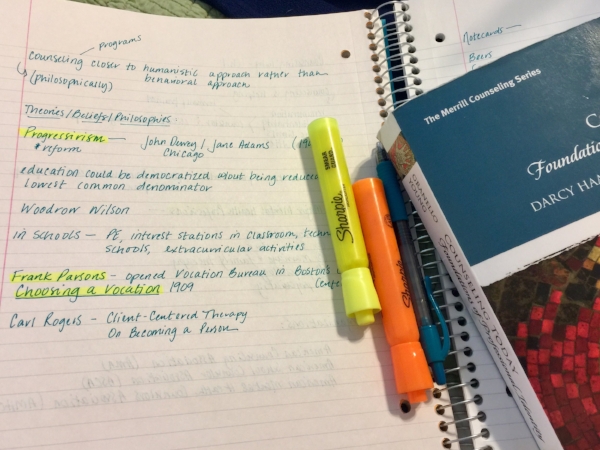 programs
counseling closer to humanistic approach rather than
(philosophically) behavioral approach
Theories/Beliefs/Philosophies
Progressivism — John Dewey / Jane Adams
*reform Chicago
education could be democratized w/out being reduced
lowest common denominator
Woodrow Wilson
in Schools — PE, interest stations in classroom,
schools, extracurricular activities
Frank Parsons — opened Vocation Bureau in Boston's
Choosing a Vocation 1909
Carl Rogers — Client-Centered Therapy
On Becoming a Person
Notecards —
Beers
Sharpie
Sharpie
The Merrill Counseling Series
Foundation
DARCY
COUNSELING TODAY
Foundations of Professional Identity